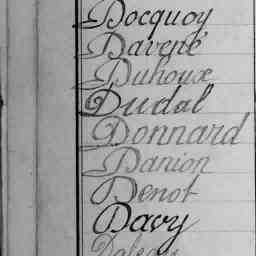 Docquoy
Davené
Duhoux
Dudal
Donnard
Danion
Denot
Davy